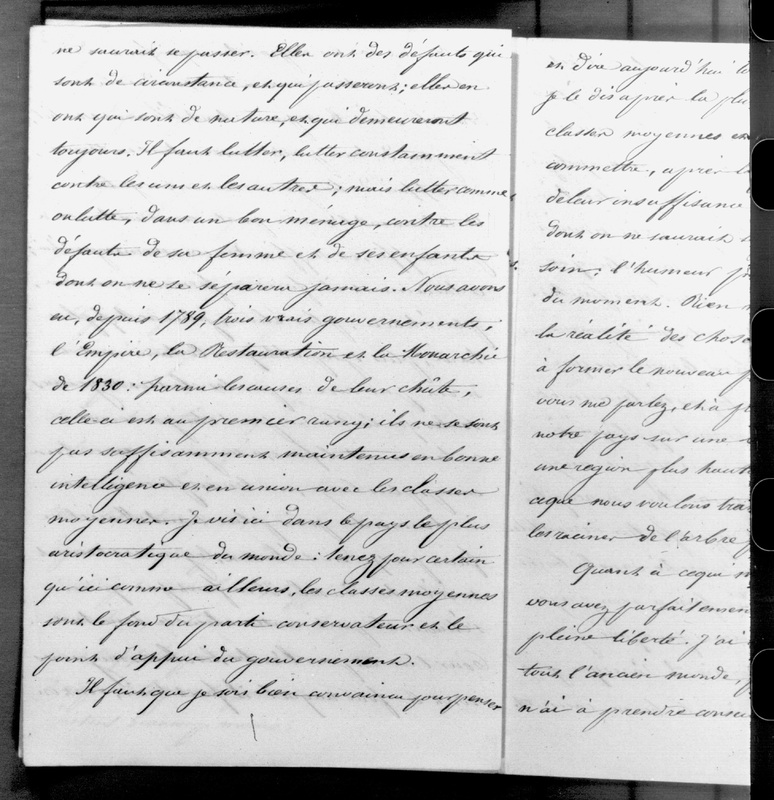 ne saurait se passer. Elles ont des défauts qui
sont de circonstance, et qui passeront; elles en
ont qui sont de nature, et qui demeureront
toujours. Il faut lutter, lutter constamment
contre les uns et les autres; mais lutter comme
on lutte, dans un bon ménage, contre les
défauts de sa femme et de ses enfants
dont on ne se séparera jamais. Nous avons
eu, depuis 1789, trois vrais gouvernements,
l'Empire, la Restauration et la Monarchie
de 1830: parmi les causes de leur chûte,
celle ci est au premier rang; ils ne se sont
pas suffisamment maintenus en bonne
intelligence et en union avec les classes
moyennes. Je vis ici dans le pays le plus
aristocratique du monde: tenez pour certain
qu'ici comme ailleurs, les classes moyennes
sont le fond du parti conservateur et le
point d'appui du gouvernement.
Il faut que je sois bien convaincu pour penser
et dire aujourd'hui
je le dis après la plu
classes moyennes
commettre, après
de leur insuffisance
dont on ne saurait
soin, l'humeur
du moment. Rien
la réalité des chose
à former le nouveau
vous me parlez, et à
notre pays sur une
une région plus haut
ce que nous voulons
les racines de l'arbre
Quant à ce qui
vous avez parfaitemen
pleine liberté. J'ai
tout l'ancien monde,
n'ai à prendre consei